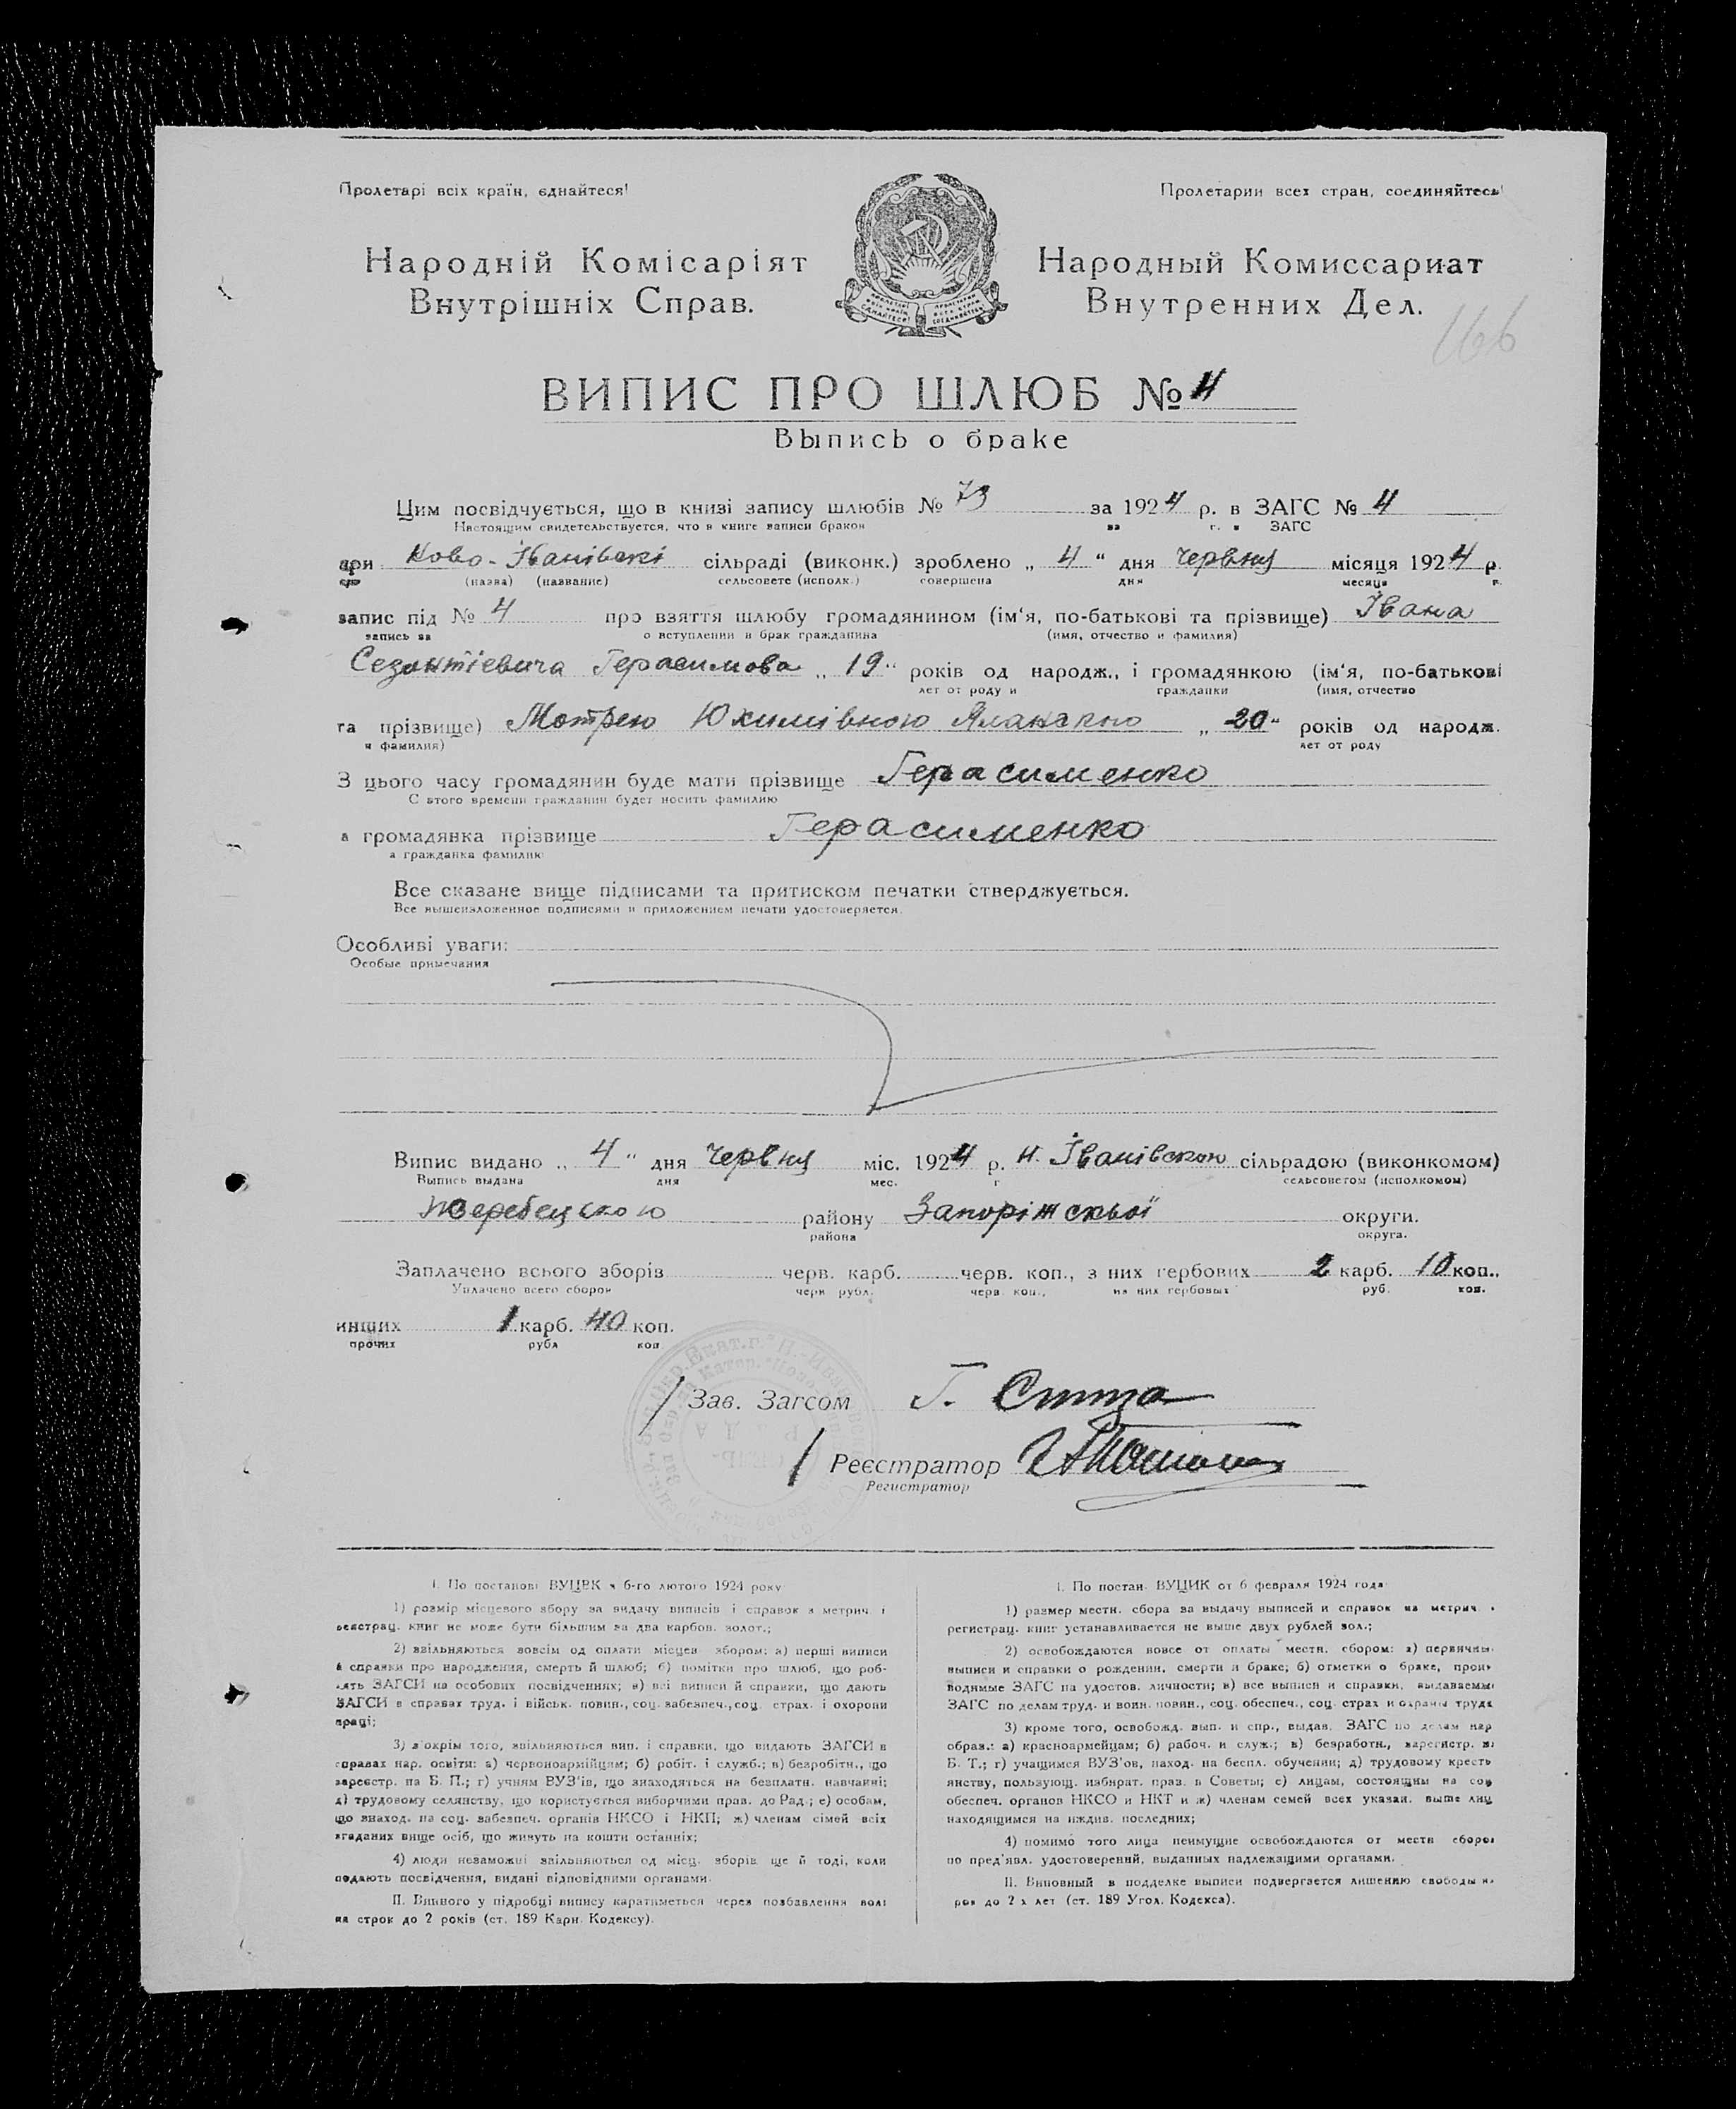 Пролетарі всіх країн, єднайтеся! Пролетарии всех стран, соединяйтесь!
Народній Комісаріят Народный Комиссариат
Внутрішніх Справ. Внутренних Дел.
166
ВИПИС ПРО ШЛЮБ № 4
Выпись о браке
Цим посвідчується, що в книзі запису шлюбів № 73 за 1924 р. в ЗАГС № 4
Настоящим свидетельствуется, что в книге записи браков за г. в ЗАГС
при Ново-Іванівскі сільраді (виконк.) зроблено „ 4 “ дня червня місяця 1924 р.
при (назва) (название) сельсовете (исполк.) совершена дня месяца г.
запис під № 4 про взяття шлюбу громадянином (ім‘я, по-батькові та прізвище) Івана
запись за о вступлении в брак гражданина (имя, отчество и фамилия)
Герасимова „ 19 “ років од народж., і громадянкою (ім‘я, по-батькові
лет от роду и гражданки (имя, отчество
та прізвище) Мотрею Юхимівною „ 20 “ років од народж.
и фамилия) лет от роду
З цього часу громадянин буде мати прізвище Герасименко
С этого времени гражданин будет носить фамилию
а громадянка прізвище Герасименко
а гражданка фамилию
Все сказане вище підписами та притиском печатки стверджується.
Все вышеизложенное подписями и приложением печати удостоверяется.
Особливі уваги:
Особые примечания
Випис видано „ 4 “ дня червня міс. 1924 р. Н. Іванівскою сільрадою (виконкомом)
Выпись выдана дня мес. г сельсоветом (исполкомом)
Жеребецскою району Запоріжськьої округи.
района округа.
Заплачено всього зборів черв. карб. черв. коп., з них гербових 2 карб. 10 коп.,
Уплачено всего сборов черв. рубл. черв. коп., из них гербовых руб. коп.
инших 1 карб. 40 коп.
прочих рубл коп
Зав. Загсом Г.
Реєстратор
Регистратор
I. По постанові ВУЦВК з 6-го лютого 1924 року
1) розмір місцевого збору за видачу виписів і справок з метрич. і
реєстрац. книг не може бути більшим за два карбов. золот.;
2) звільняються зовсім од оплати місцев. збором: а) перші виписи
й справки про народження, смерть й шлюб; б) помітки про шлюб, що роб-
лять ЗАГСИ на особових посвідченнях; в) всі виписи й справки, що дають
ЗАГСИ в справах труд. і військ. повин., соц. забезпеч., соц. страх. і охорони
праці;
3) з‘окрім того, звільняються вип. і справки, що видають ЗАГСИ в
справах нар. освіти: а) червоноармійцям; б) робіт. і служб.; в) безробітн., що
зареєстр. на Б. П.; г) учням ВУЗ‘ів, що знаходяться на безплатн. навчанні;
д) трудовому селянству, що користується виборчими прав. до Рад.; е) особам,
що знаход. на соц. забезпеч. органів НКСО і НКП; ж) членам сімей всіх
згаданих вище осіб, що живуть на кошти останніх;
4) люди незаможні звільняються од місц. зборів ще й тоді, коли
подають посвідчення, видані відповідними органами.
II. Винного у підробці випису каратиметься через позбавлення волі
на строк до 2 років (ст. 189 Карн. Кодексу).
I. По постан. ВУЦИК от 6 февраля 1924 года
1) размер местн. сбора за выдачу выписей и справок из метрич. и
регистрац. книг устанавливается не выше двух рублей зол.;
2) освобождаются вовсе от оплаты местн. сбором: а) первичны
выписи и справки о рождении, смерти и браке; б) отметки о браке, произ
водимые ЗАГС на удостов. личности; в) все выписи и справки, выдаваемы
ЗАГС по делам труд. и воин. повин., соц. обеспеч., соц. страх и охраны труда
3) кроме того, освобожд. вып. и спр., выдав. ЗАГС по делам нар
образ.: а) красноармейцам; б) рабоч. и служ.; в) безработн., зарегистр. на
Б. Т.; г) учащимся ВУЗ‘ов, наход. на беспл. обучении; д) трудовому кресть
янству, пользующ. избират. прав. в Советы; е) лицам, состоящим на соц
обеспеч. органов НКСО и НКТ и ж) членам семей всех указан. выше лиц
находящимся на иждив. последних;
4) помимо того лица неимущие освобождаются от местн сборов
по пред‘явл. удостоверений, выданных надлежащими органами.
II. Виновный в подделке выписи подвергается лишению свободы на
рок до 2 х лет (ст. 189 Угол. Кодекса).